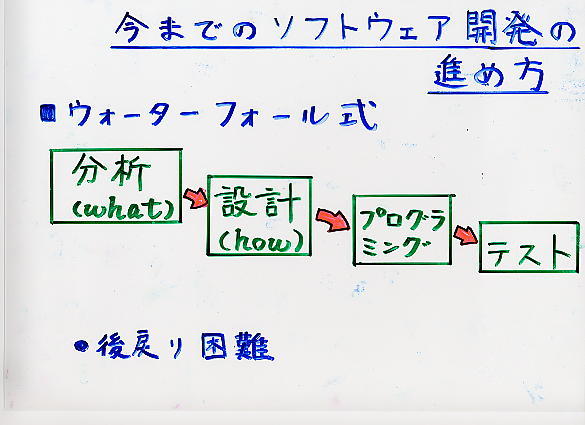 今までのソフトウェア開発の
進め方
■ウォーターフォール式
分析
(what)
設計
(how)
プログラ
ミング
テスト
●後戻り困難